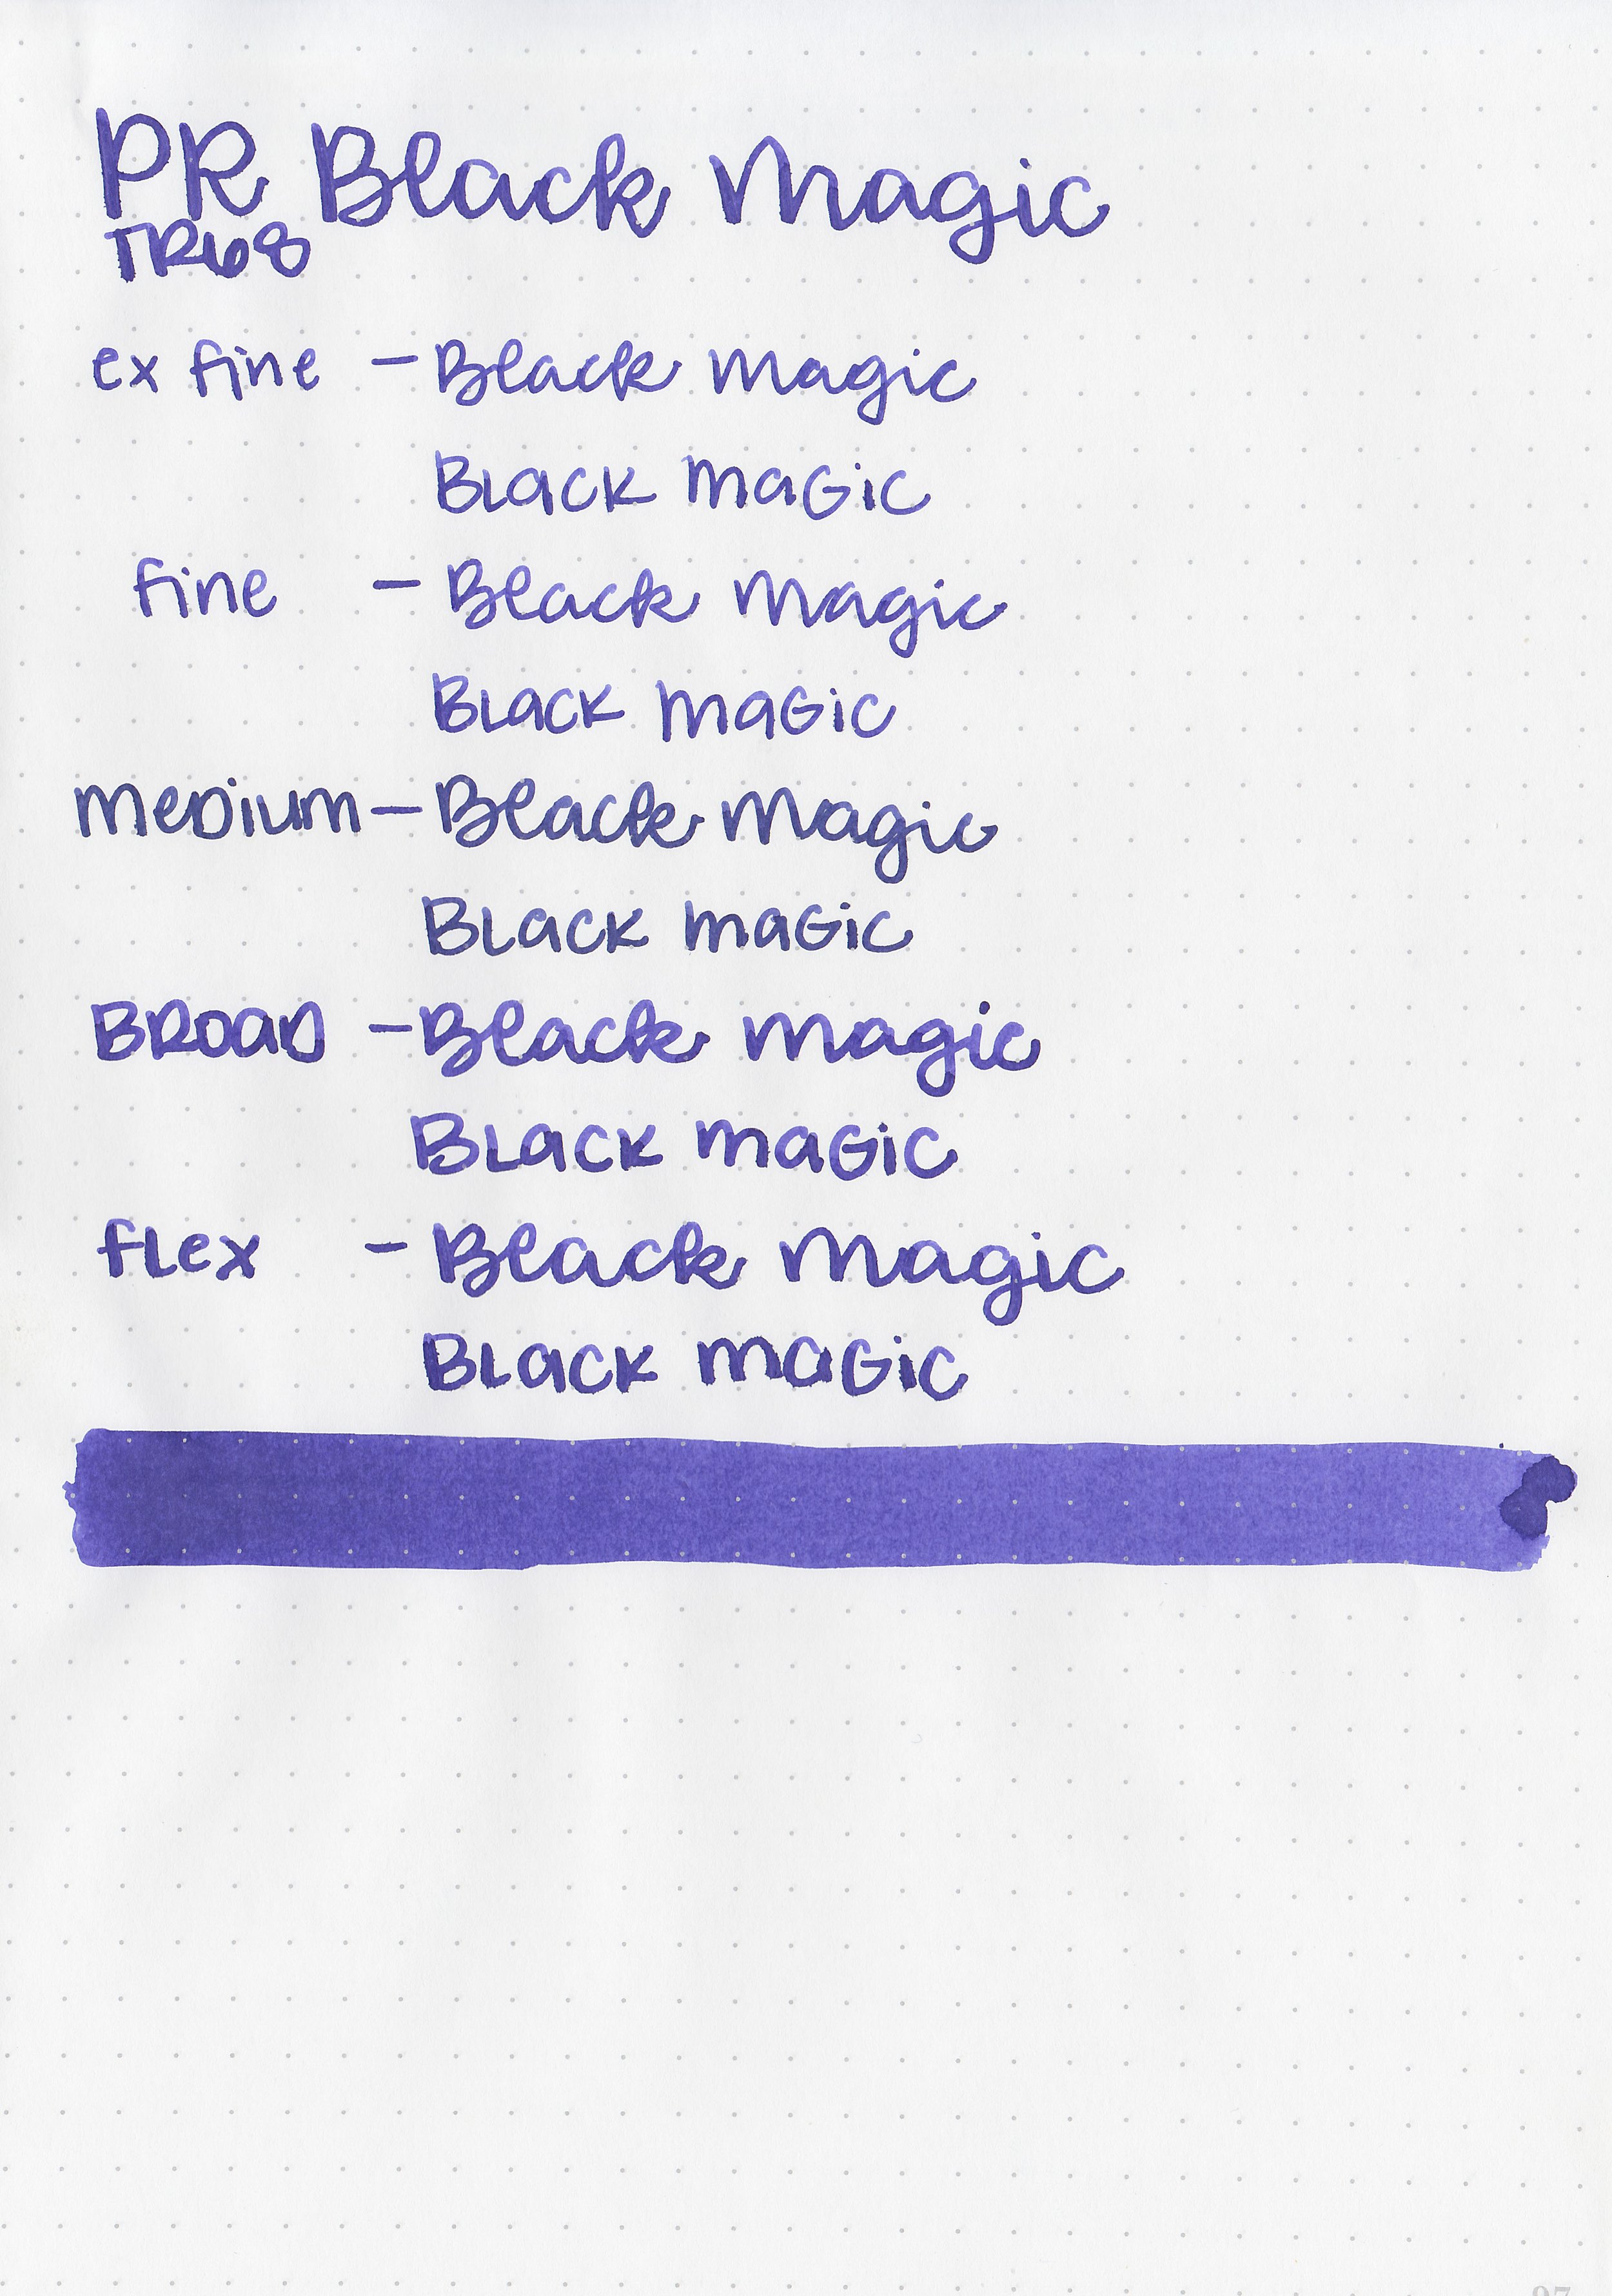 PR Black Magic
TR68
ex fine - Black Magic
BLACK MAGIC
fine - Black Magic
BLACK MAGIC
MEDIUM - Black Magic
BLACK MAGIC
BROAD - Black Magic
BLACK MAGIC
FLEX - Black Magic
BLACK MAGIC